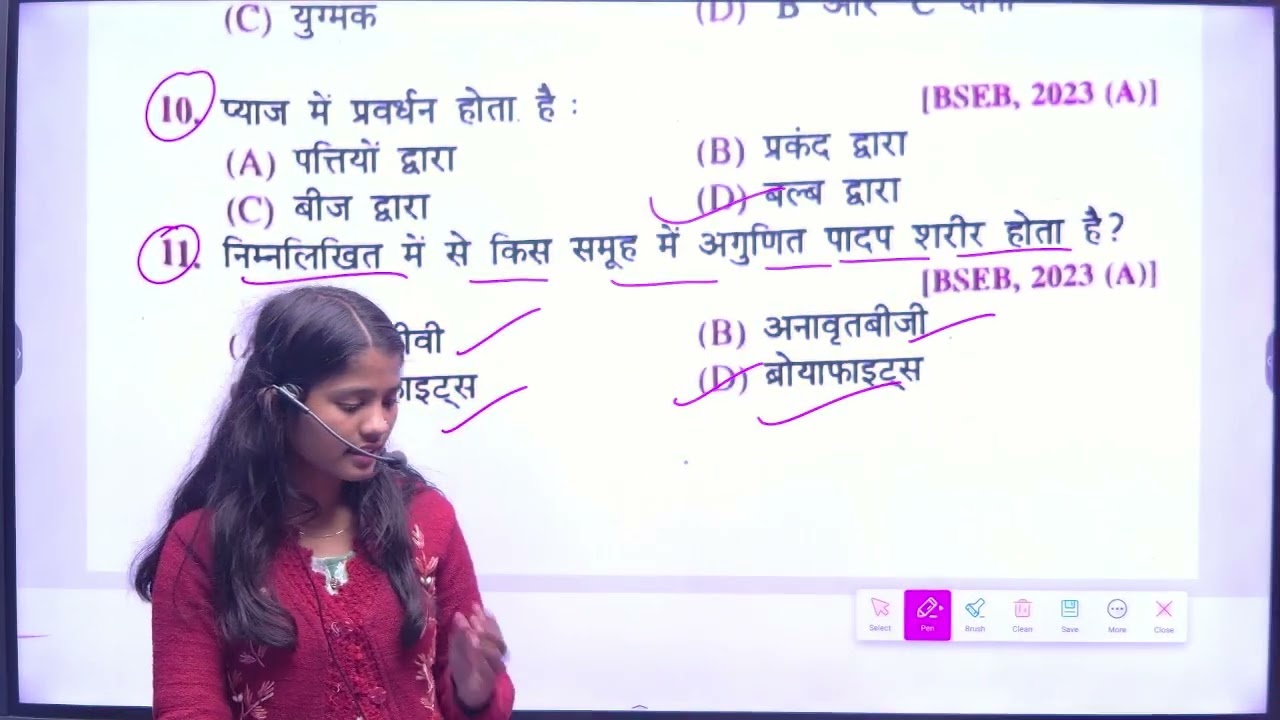 (C) युग्मक (D) B और C दोनों
10. प्याज में प्रवर्धन होता है :
[BSEB, 2023 (A)]
(A) पत्तियों द्वारा (B) प्रकंद द्वारा
(C) बीज द्वारा (D) बल्ब द्वारा
11. निम्नलिखित में से किस समूह में अगुणित पादप शरीर होता है?
[BSEB, 2023 (A)]
(B) अनावृतबीजी
(D) ब्रोयाफाइट्स
Select Pen Brush Clean Save More Close